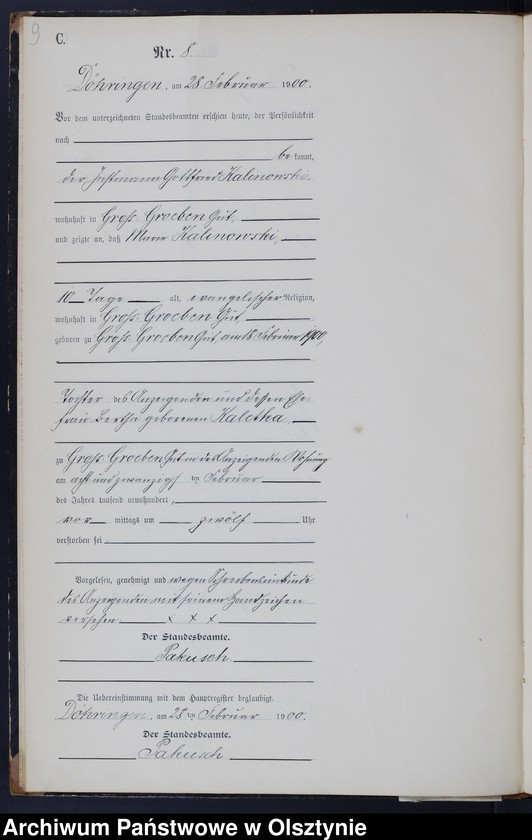 9
C.
Nr. 8.
Döhringen, am 28. Februar 1900.
Vor dem unterzeichneten Standesbeamten erschien heute, der Persönlichkeit
nach
be kannt,
der Instmann Gottfried Kalinowski
wohnhaft in Gross Groeben Gut,
und zeigte an, daß Marie Kalinowski,
10 Tage alt, evangelischer Religion,
wohnhaft in Gross Groeben Gut
geboren zu Gross Groeben Gut, am 18. Februar 1900,
Tochter des Anzeigenden und dessen Ehe-
frau Bertha geborenen Kaletka,
zu Gross Groeben Gut in des Anzeigenden Wohnung
am acht und zwanzigsten Februar
des Jahres tausend neunhundert,
vor mittags um zwölf Uhr
verstorben sei
Vorgelesen, genehmigt und wegen Schreibensunkunde
des Anzeigenden mit seinem Handzeichen
versehen. x x x
Der Standesbeamte.
Pakusch
Die Uebereinstimmung mit dem Hauptregister beglaubigt.
Döhringen, am 28 ten Februar 1900.
Der Standesbeamte.
Pakusch
Archiwum Państwowe w Olsztynie